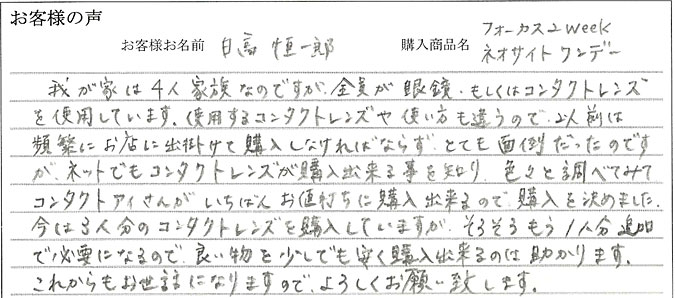 お客様の声
フォーカス2week
お客様お名前 日高 恒一郎 購入商品名 ネオサイトワンデー
我が家は4人家族なのですが、全員が眼鏡、もしくはコンタクトレンズ
を使用しています。使用するコンタクトレンズや使い方も違うので、以前は
頻繁にお店に出掛けて購入しなければならず、とても面倒だったのです
が、ネットでもコンタクトレンズが購入出来る事を知り、色々と調べてみて
コンタクトアイさんがいちばんお値打ちに購入出来るので、購入を決めました。
今は3人分のコンタクトレンズを購入していますが、そろそろもう1人分追加
で必要になるので、良い物を少しでも安く購入出来るのは助かります。
これからもお世話になりますので、よろしくお願い致します。